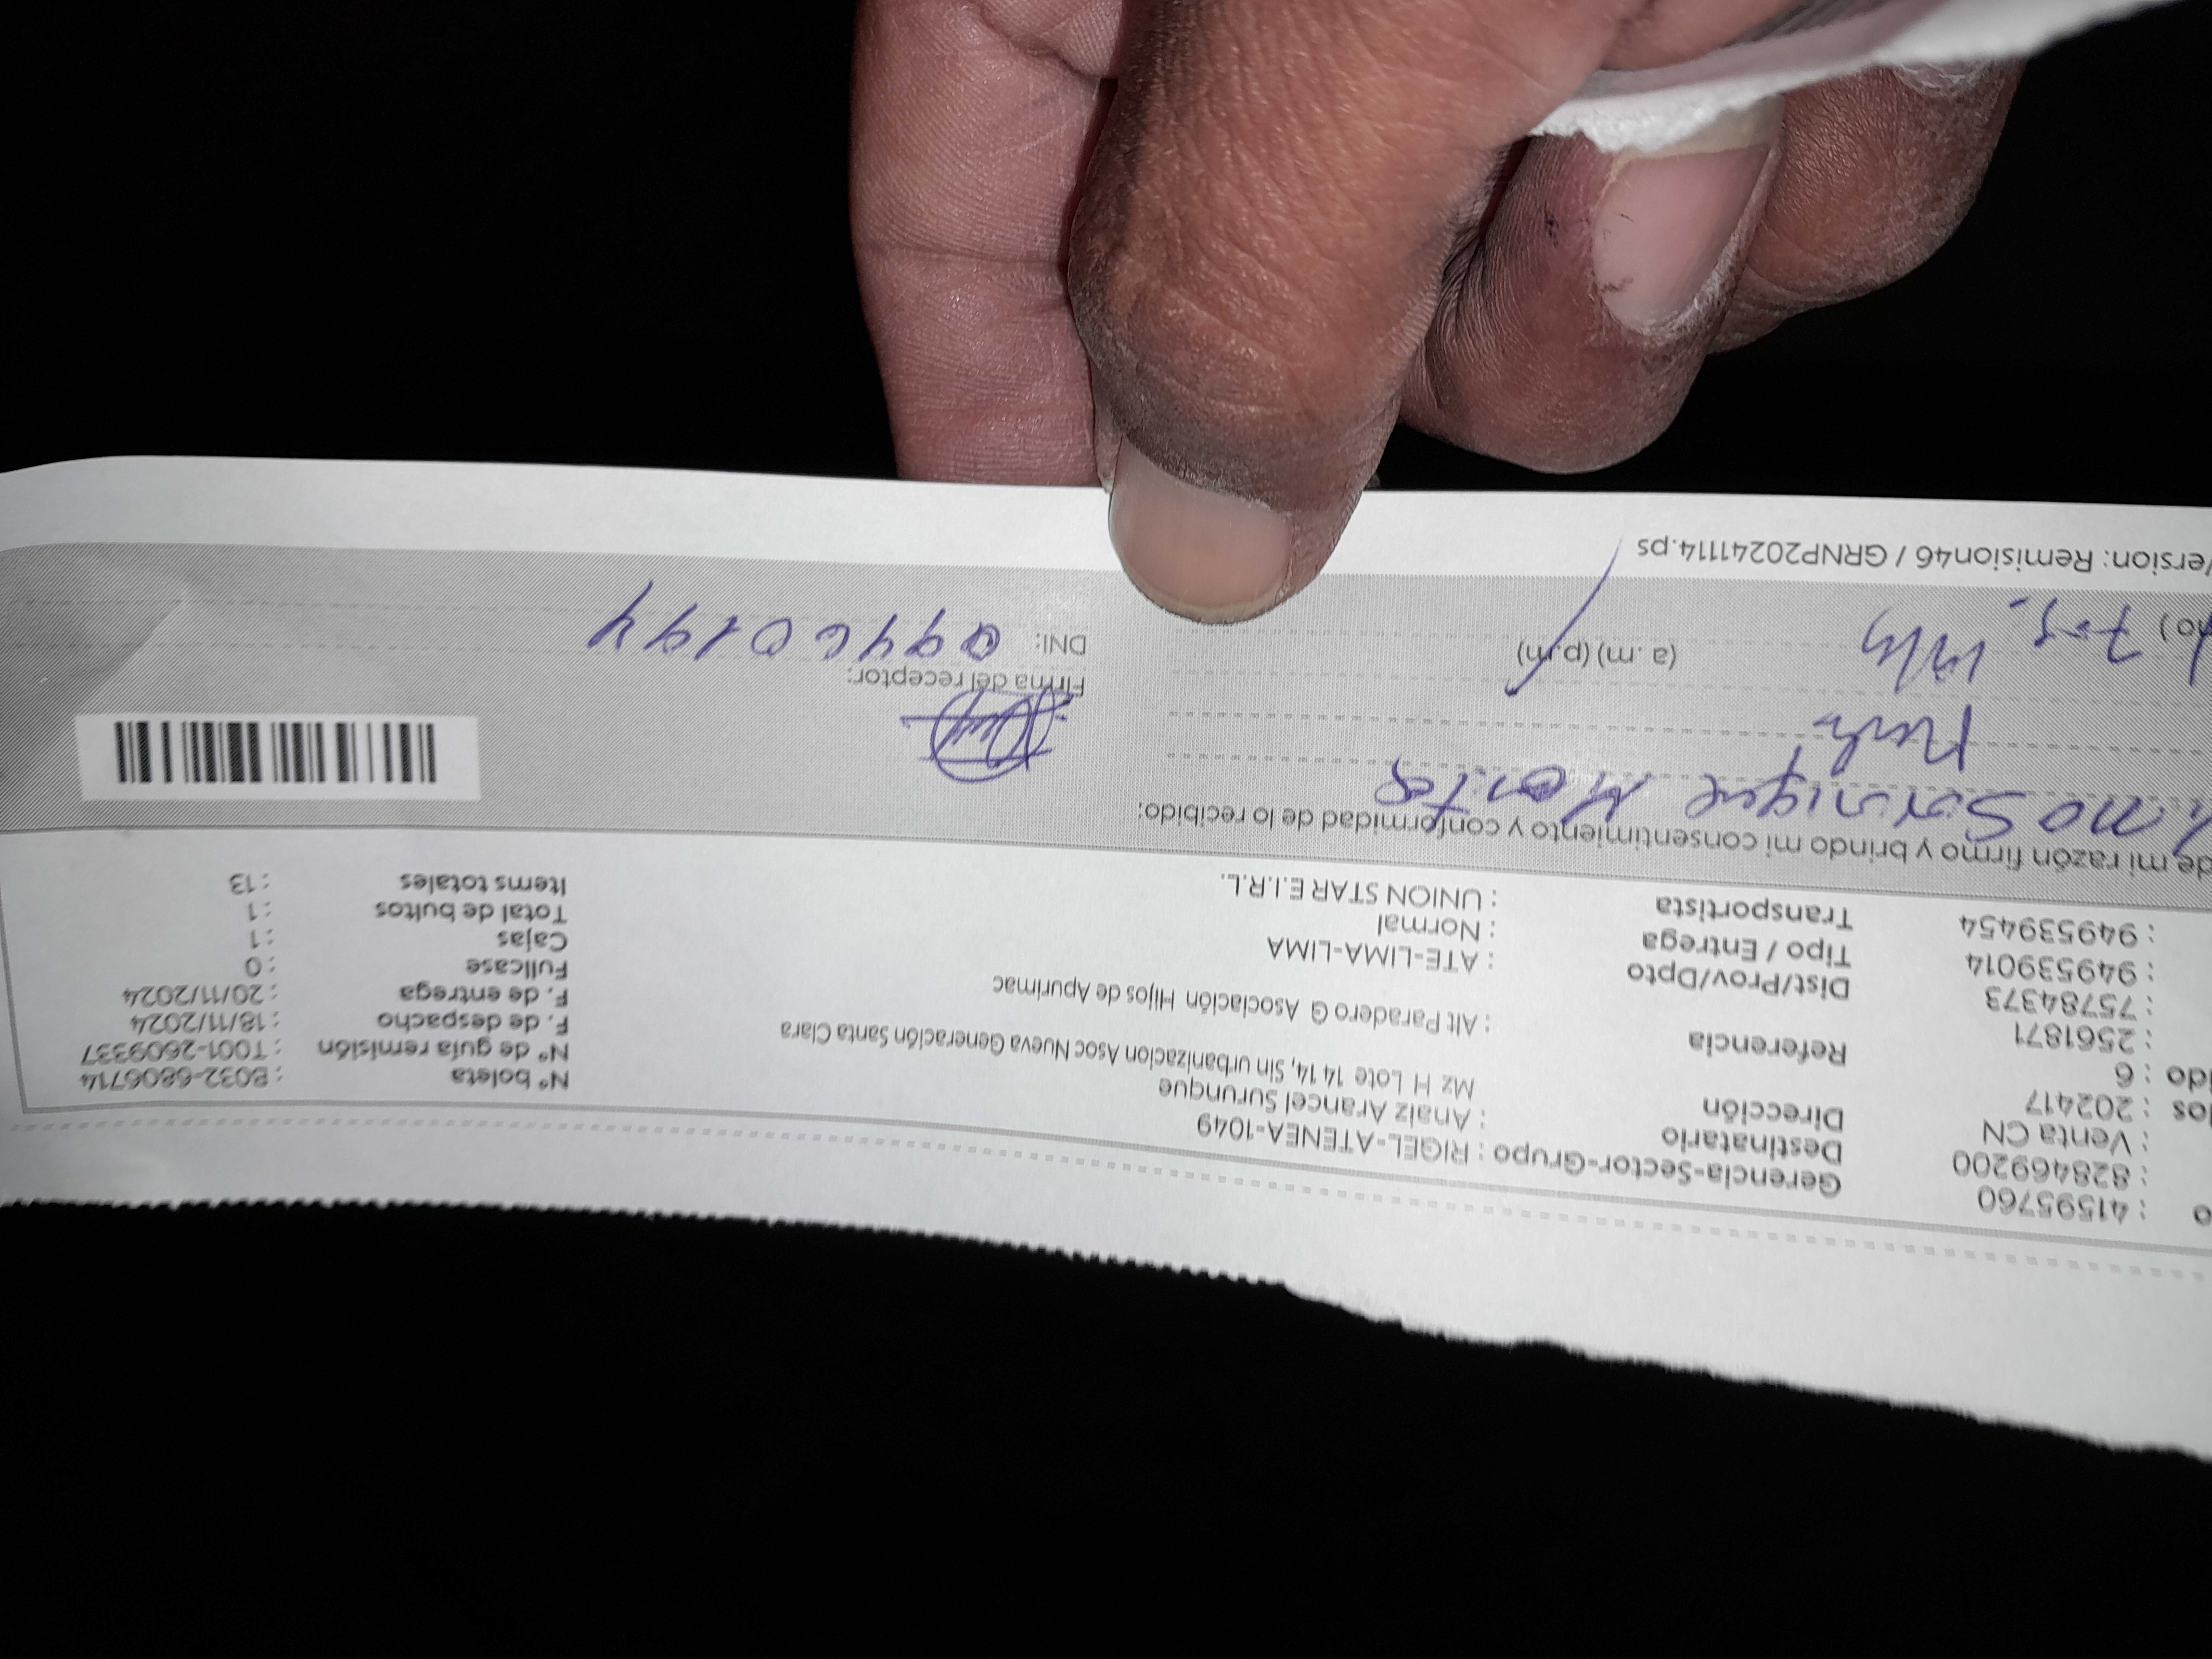 o : 41595760 Gerencia-Sector-Grupo : RIGEL-ATENEA-1049 N° boleta : B032-6806714
: 828469200 Destinatario : Anaiz Arancel Surunque N° de guía remisión : T001-2609337
: Venta CN Dirección Mz H Lote 14 14, Sin urbanización Asoc Nueva Generación Santa Clara F. de despacho : 18/11/2024
los : 202417 F. de entrega : 20/11/2024
ido : 6 Referencia : Alt Paradero G Asociación Hijos de Apurimac Fullcase : 0
: 2561871 Cajas : 1
: 75784373 Dist/Prov/Dpto : ATE-LIMA-LIMA Total de bultos : 1
: 949539014 Tipo / Entrega : Normal Items totales : 13
: 949539454 Transportista : UNION STAR E.I.R.L.
de mi razón firmo y brindo mi consentimiento y conformidad de lo recibido:
Montes
Firma del receptor:
(a.m) (p.m) DNI: 09460194
Version: Remision46 / GRNP20241114.ps